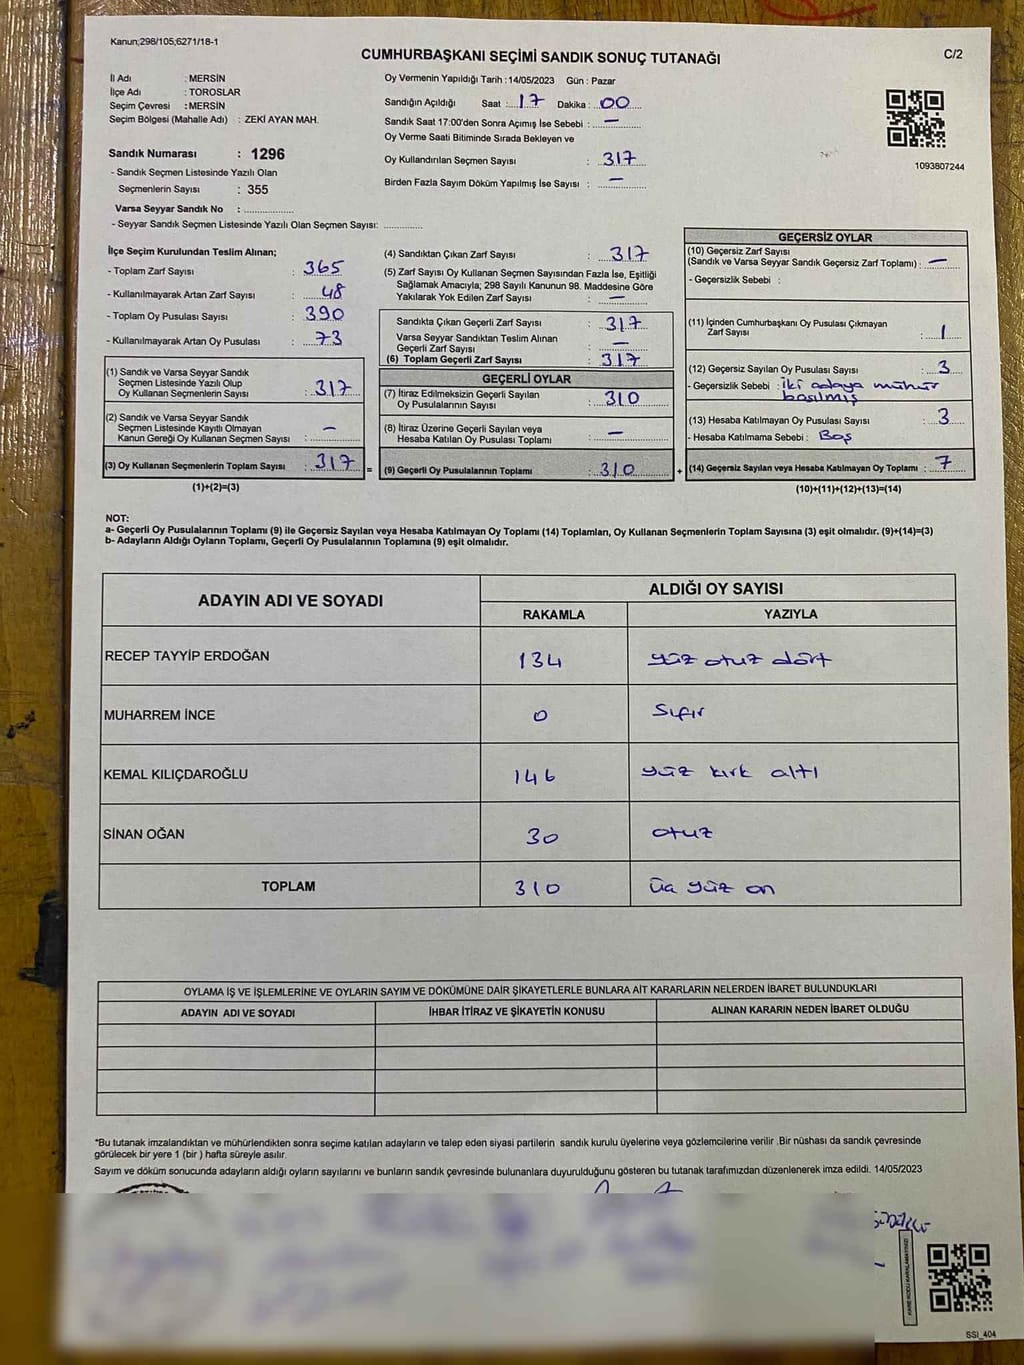 Kanun;298/105;6271/18-1
CUMHURBAŞKANI SEÇİMİ SANDIK SONUÇ TUTANAĞI
C/2
İl Adı : MERSİN
İlçe Adı : TOROSLAR
Seçim Çevresi : MERSİN
Seçim Bölgesi (Mahalle Adı) : ZEKİ AYAN MAH.
Sandık Numarası : 1296
- Sandık Seçmen Listesinde Yazılı Olan
Seçmenlerin Sayısı : 355
Varsa Seyyar Sandık No :
- Seyyar Sandık Seçmen Listesinde Yazılı Olan Seçmen Sayısı:
Oy Vermenin Yapıldığı Tarih : 14/05/2023 Gün : Pazar
Sandığın Açıldığı Saat : 17 Dakika : 00
Sandık Saat 17:00'den Sonra Açımış İse Sebebi : —
Oy Verme Saati Bitiminde Sırada Bekleyen ve
Oy Kullandırılan Seçmen Sayısı : 317
Birden Fazla Sayım Döküm Yapılmış İse Sayısı : —
1093807244
İlçe Seçim Kurulundan Teslim Alınan;
- Toplam Zarf Sayısı : 365
- Kullanılmayarak Artan Zarf Sayısı : 48
- Toplam Oy Pusulası Sayısı : 390
- Kullanılmayarak Artan Oy Pusulası : 73
(1) Sandık ve Varsa Seyyar Sandık
Seçmen Listesinde Yazılı Olup
Oy Kullanan Seçmenlerin Sayısı : 317
(2) Sandık ve Varsa Seyyar Sandık
Seçmen Listesinde Kayıtlı Olmayan
Kanun Gereği Oy Kullanan Seçmen Sayısı : —
(3) Oy Kullanan Seçmenlerin Toplam Sayısı : 317 =
(1)+(2)=(3)
(4) Sandıktan Çıkan Zarf Sayısı : 317
(5) Zarf Sayısı Oy Kullanan Seçmen Sayısından Fazla İse, Eşitliği
Sağlamak Amacıyla; 298 Sayılı Kanunun 98. Maddesine Göre
Yakılarak Yok Edilen Zarf Sayısı : —
Sandıkta Çıkan Geçerli Zarf Sayısı : 317
Varsa Seyyar Sandıktan Teslim Alınan
Geçerli Zarf Sayısı : —
(6) Toplam Geçerli Zarf Sayısı : 317
GEÇERLİ OYLAR
(7) İtiraz Edilmeksizin Geçerli Sayılan
Oy Pusulalarının Sayısı : 310
(8) İtiraz Üzerine Geçerli Sayılan veya
Hesaba Katılan Oy Pusulası Toplamı : —
(9) Geçerli Oy Pusulalarının Toplamı : 310 +
GEÇERSİZ OYLAR
(10) Geçersiz Zarf Sayısı
(Sandık ve Varsa Seyyar Sandık Geçersiz Zarf Toplamı) : —
- Geçersizlik Sebebi :
(11) İçinden Cumhurbaşkanı Oy Pusulası Çıkmayan
Zarf Sayısı : 1
(12) Geçersiz Sayılan Oy Pusulası Sayısı : 3
- Geçersizlik Sebebi : iki adaya mühür
basılmış
(13) Hesaba Katılmayan Oy Pusulası Sayısı : 3
- Hesaba Katılmama Sebebi : Boş
(14) Geçersiz Sayılan veya Hesaba Katılmayan Oy Toplamı : 7
(10)+(11)+(12)+(13)=(14)
NOT:
a- Geçerli Oy Pusulalarının Toplamı (9) ile Geçersiz Sayılan veya Hesaba Katılmayan Oy Toplamı (14) Toplamları, Oy Kullanan Seçmenlerin Toplam Sayısına (3) eşit olmalıdır. (9)+(14)=(3)
b- Adayların Aldığı Oyların Toplamı, Geçerli Oy Pusulalarının Toplamına (9) eşit olmalıdır.
ADAYIN ADI VE SOYADI
ALDIĞI OY SAYISI
RAKAMLA YAZIYLA
RECEP TAYYİP ERDOĞAN 134 yüz otuz dört
MUHARREM İNCE 0 Sıfır
KEMAL KILIÇDAROĞLU 146 yüz kırk altı
SİNAN OĞAN 30 otuz
TOPLAM 310 üç yüz on
OYLAMA İŞ VE İŞLEMLERİNE VE OYLARIN SAYIM VE DÖKÜMÜNE DAİR ŞİKAYETLERLE BUNLARA AİT KARARLARIN NELERDEN İBARET BULUNDUKLARI
ADAYIN ADI VE SOYADI İHBAR İTİRAZ VE ŞİKAYETİN KONUSU ALINAN KARARIN NEDEN İBARET OLDUĞU
*Bu tutanak imzalandıktan ve mühürlendikten sonra seçime katılan adayların ve talep eden siyasi partilerin sandık kurulu üyelerine veya gözlemcilerine verilir .Bir nüshası da sandık çevresinde
görülecek bir yere 1 (bir ) hafta süreyle asılır.
Sayım ve döküm sonucunda adayların aldığı oyların sayılarını ve bunların sandık çevresinde bulunanlara duyurulduğunu gösteren bu tutanak tarafımızdan düzenlenerek imza edildi. 14/05/2023
KARE KODU KARALAMAYINIZ!
SSI_404